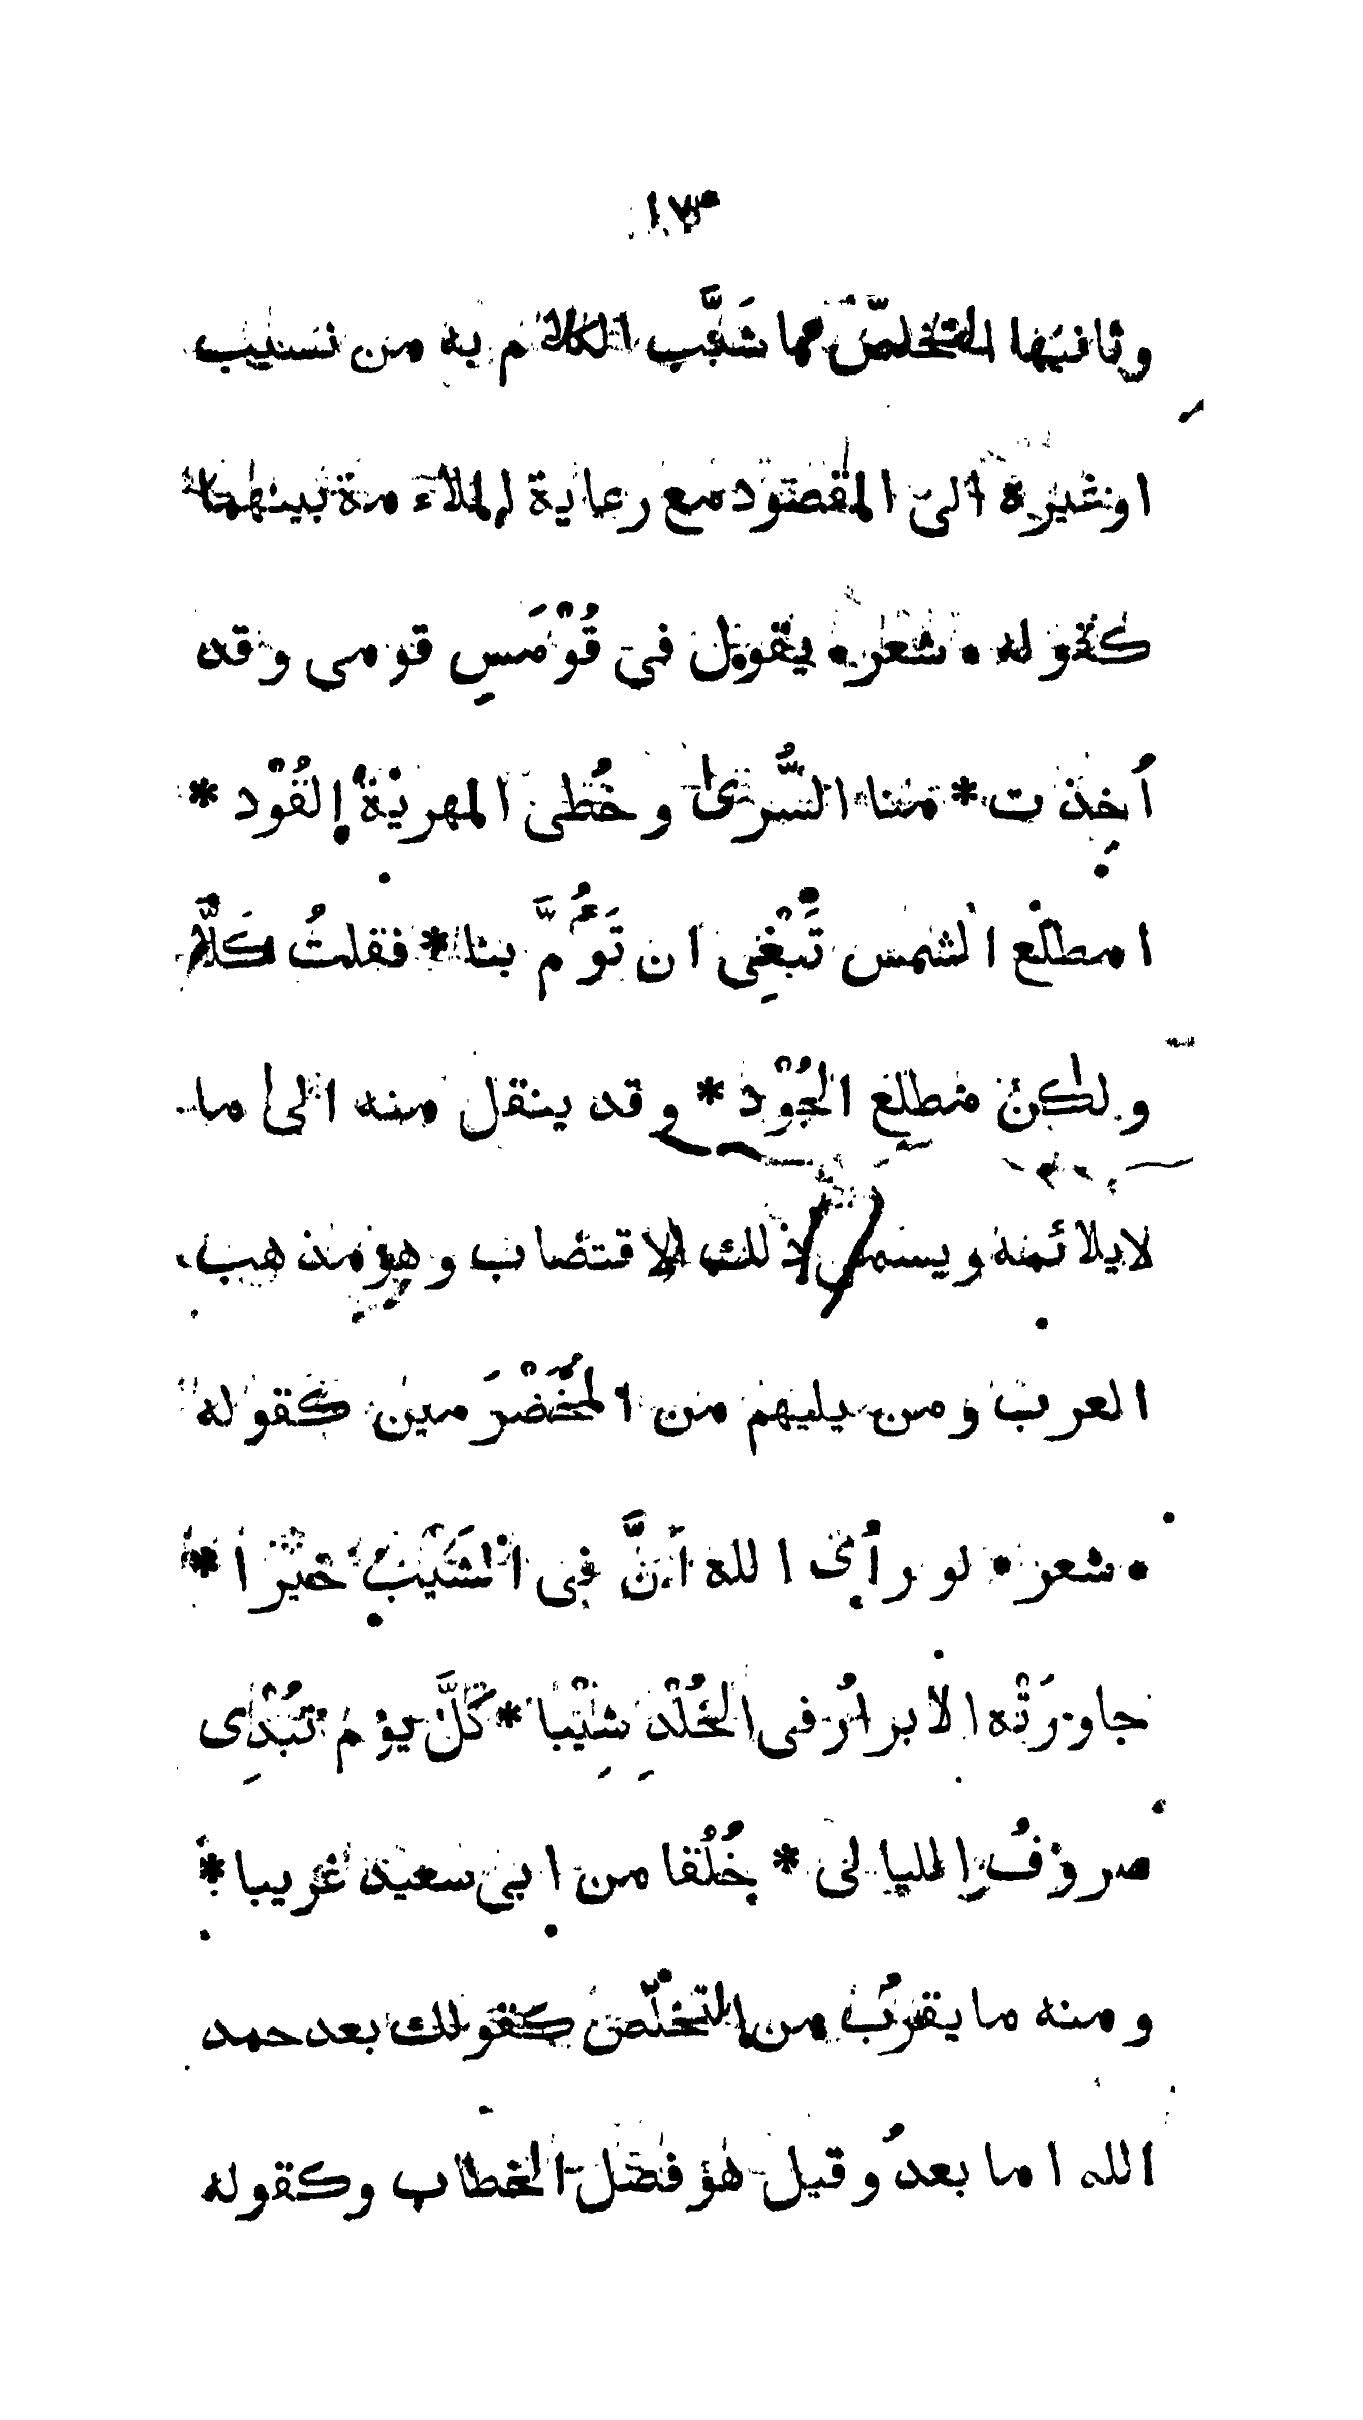 ١٧٣
وثانيها التخلّص مما شَبَّب الكلام به من نسيب
اوغيره الى المقصود مع رعاية الملاءمة بينهما
كقوله • شعر • يقول في قُوْمَسِ قومى وقد
أخِذت * منا السُّرى وخُطى المهريّة القُوْد *
امطلع الشمس تَبْغِى ان تَوُمَّ بنا * فقلتُ كَلّا
ولكن مطلع الجُوْد * وقد ينقل منه الى ما
لايلائمه ويسمى ذلك الاقتضاب وهو مذهب
العرب ومن يليهم من المُخَضْرَمين كقوله
• شعر • لو رأى الله انَّ فى الشَيْب خيرا *
جاورَتْه الابرارُ فى الخُلْدِ شِيْبا * كلَّ يوم تُبْدِى
صروفُ الليالى * خُلُقا من ابى سعيد غريبا *
ومنه ما يقرُب من التخلّص كقولك بعد حمد
الله اما بعدُ وقيل هو فصل الخطاب وكقوله